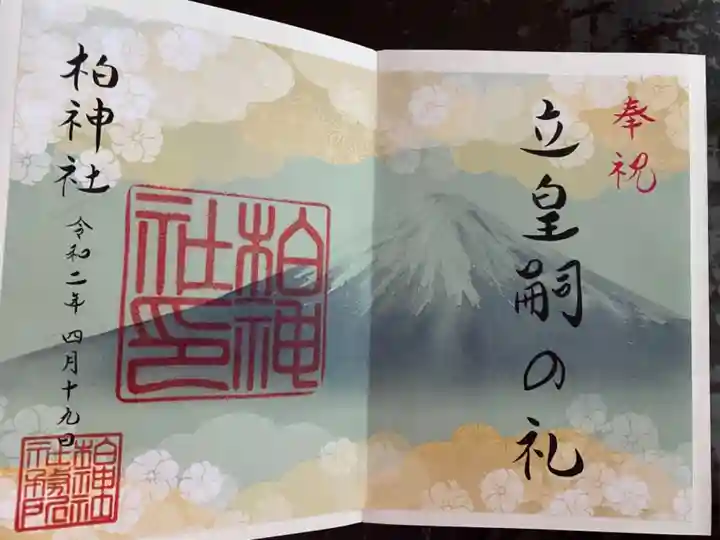 奉祝
立皇嗣の礼
柏神社
令和二年四月十九日
柏神
社印
柏神社
社務所